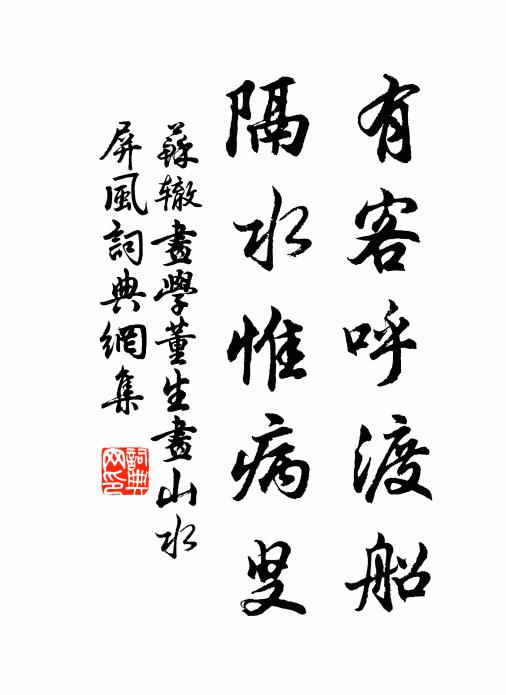 有客呼渡船
隔水惟病叟
蘇辙畫學董生畫山水
屏風詞典網集
詞典
网印